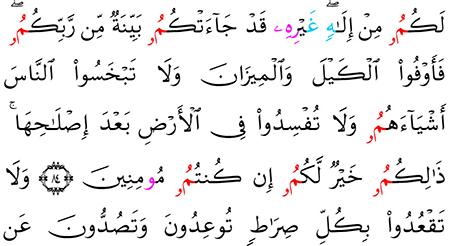 لَكُمُۥ مِنْ إِلَٰهٍ غَيْرِهِۦ ۖ قَدْ جَآءَتْكُمُۥ بَيِّنَةٌ مِّن رَّبِّكُمُۥ ۖ
فَأَوْفُوا۟ ٱلْكَيْلَ وَٱلْمِيزَانَ وَلَا تَبْخَسُوا۟ ٱلنَّاسَ
أَشْيَآءَهُمُۥ وَلَا تُفْسِدُوا۟ فِى ٱلْأَرْضِ بَعْدَ إِصْلَٰحِهَا ۚ
ذَٰلِكُمُۥ خَيْرٌ لَّكُمُۥ إِن كُنتُمُۥ مُومِنِينَ ٨٤ وَلَا
تَقْعُدُوا۟ بِكُلِّ صِرَٰطٍ تُوعِدُونَ وَتَصُدُّونَ عَن